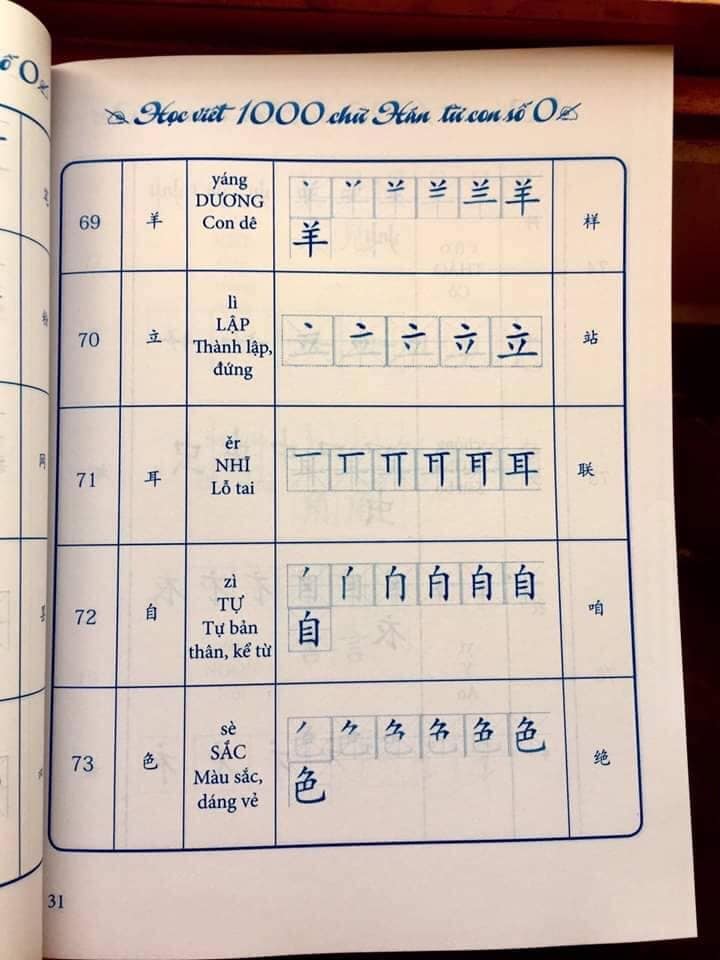 Học viết 1000 chữ Hán từ con số 0
69
羊
yáng
DƯƠNG
Con dê
丶 丷 䒑 兰 羊
羊
样
70
立
lì
LẬP
Thành lập,
đứng
丶 亠 六 立
站
71
耳
ěr
NHĨ
Lỗ tai
一 丅 耳
联
72
自
zì
TỰ
Tự bản
thân, kể từ
丿 白 自
自
咱
73
色
sè
SẮC
Màu sắc,
dáng vẻ
丿 色
色
绝
31